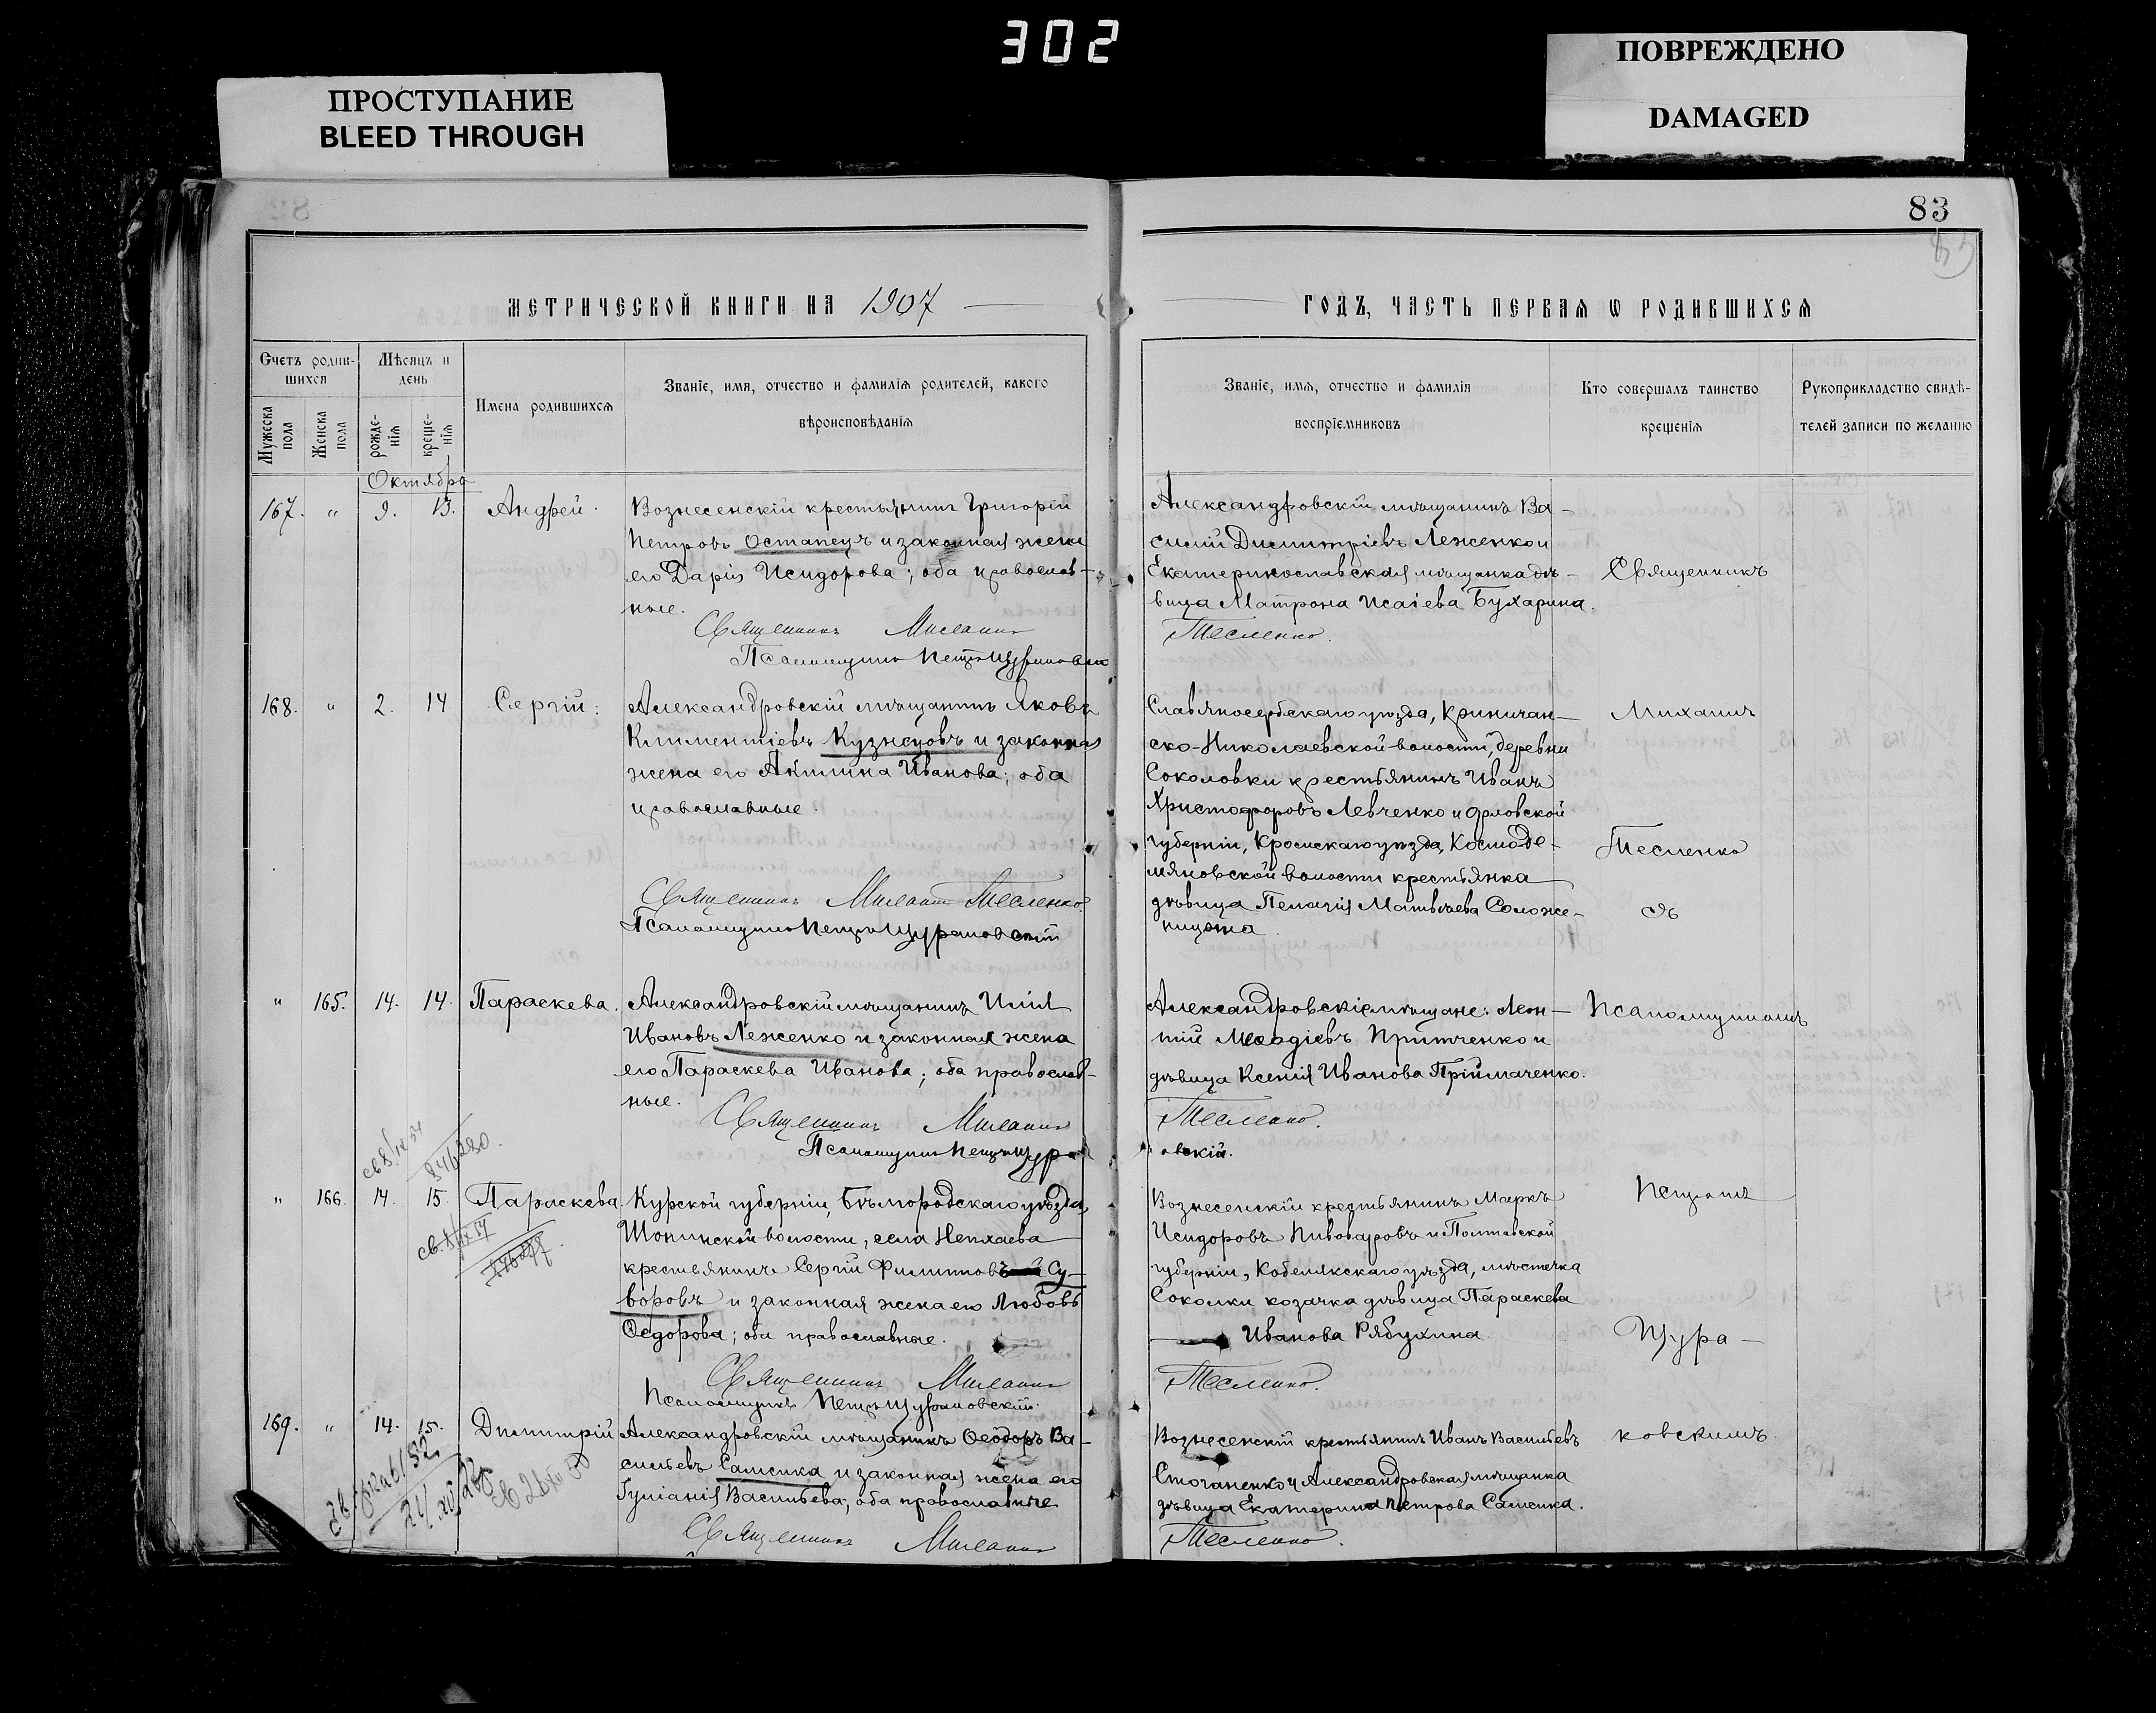 302
ПРОСТУПАНИЕ
BLEED THROUGH
ПОВРЕЖДЕНО
DAMAGED
83
МЕТРИЧЕСКОЙ КНИГИ НА 1907
ГОДЪ, ЧАСТЬ ПЕРВАЯ Ѡ РОДИВШИХСЯ
Счетъ родив-
шихся
Мѣсяцъ и
день
Мужеска
пола
Женска
пола
рожде-
нія
креще-
нія
Имена родившихся
Званіе, имя, отчество и фамилія родителей, какого
вѣроисповѣданія
Званіе, имя, отчество и фамилія
воспріемниковъ
Кто совершалъ таинство
крещенія
Рукоприкладство свидѣ-
телей записи по желанію
Октября
167. " 9. 13. Андрей.
Вознесенскій крестьянинъ Григорій
Петровъ Остапецъ и законная жена
его Дарія Исидорова; оба православ-
ные.
Священникъ Михаилъ
Псаломщикъ Петръ Щураковскій
Александровскій мѣщанинъ Ва-
силій Димитріевъ Леженко и
Екатеринославская мѣщанка дѣ-
вица Матрона Исаіева Бухарина.
Тесленко.
Священникъ
168. " 2. 14 Сергій.
Александровскій мѣщанинъ Яковъ
Климентіевъ Кузнецовъ и законная
жена его Акилина Иванова; оба
православные.
Священникъ Михаилъ Тесленко.
Псаломщикъ Петръ Щураковскій
Славяносербскаго уѣзда, Криничан-
ско-Николаевской волости, деревни
Соколовки крестьянинъ Иванъ
Христофоровъ Левченко и Орловской
губерніи, Кромскаго уѣзда, Космоде-
мяновской волости крестьянка
дѣвица Пелагія Матвѣева
Михаилъ
Тесленко
съ
" 165. 14. 14. Параскева.
Александровскій мѣщанинъ Илія
Ивановъ Леженко и законная жена
его Параскева Иванова; оба православ-
ные.
Священникъ Михаилъ
Псаломщикъ Петръ Щура
Александровскіе мѣщане: Леон-
тій Притченко и
дѣвица Ксенія Иванова Пріймаченко.
Тесленко.
овскій.
Псаломщикомъ
" 166. 14. 15. Параскева
Курской губерніи, Бѣлгородскаго уѣзда,
Шопинской волости, села Непхаева
крестьянинъ Сергій Филипповъ Су-
воровъ и законная жена его Любовь
Ѳедорова; оба православные.
Священникъ Михаилъ
Псаломщикъ Петръ Щураковскій.
Вознесенскій крестьянинъ Маркъ
Исидоровъ Пивоваровъ и Полтавской
губерніи, Кобелякскаго уѣзда, мѣстечка
Соколки козачка дѣвица Параскева
Иванова Рябухина
Тесленко.
Петромъ
Щура-
169. " 14. 15. Димитрій
Александровскій мѣщанинъ Ѳеодоръ Ва-
сильевъ Самсика и законная жена его
Іуліанія Васильева; оба православные
Священникъ Михаилъ
Вознесенскій крестьянинъ Иванъ Васильевъ
и Александровская мѣщанка
дѣвица Екатерина Петрова Самсика.
Тесленко.
ковскимъ.